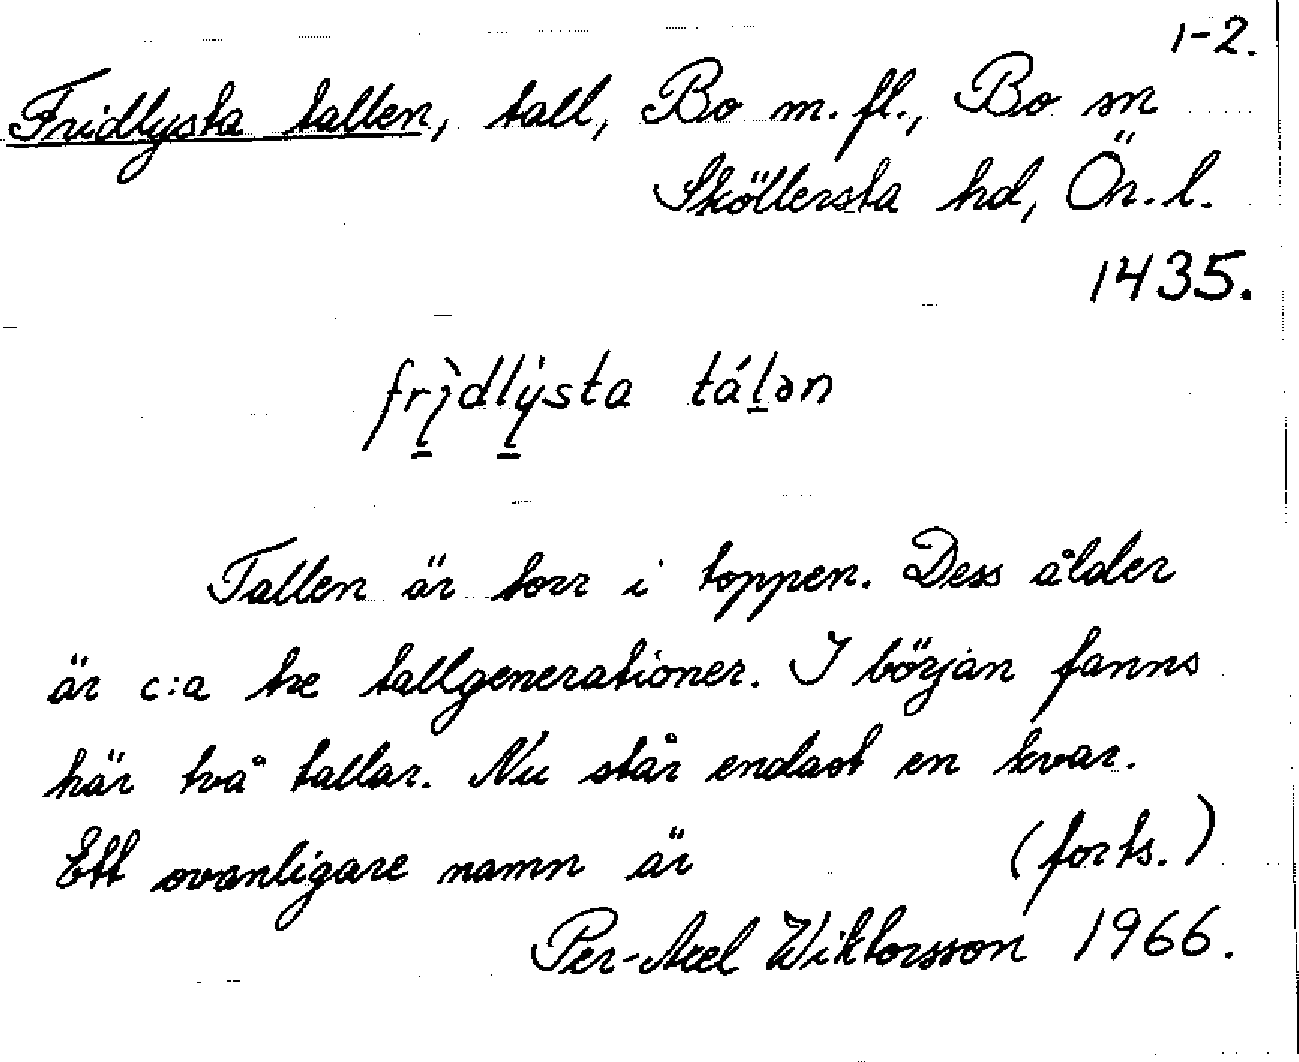 1-2.
Fridlysta tallen, tall, Bo m. fl., Bo sn
Sköllersta hd, Ör. l.
1435.
frìdlýsta tálən
Tallen är torr i toppen. Dess ålder
är c:a tre tallgenerationer. I början fanns
här två tallar. Nu står endast en kvar.
Ett ovanligare namn är (forts.)
Per-Axel Wiktorsson 1966.